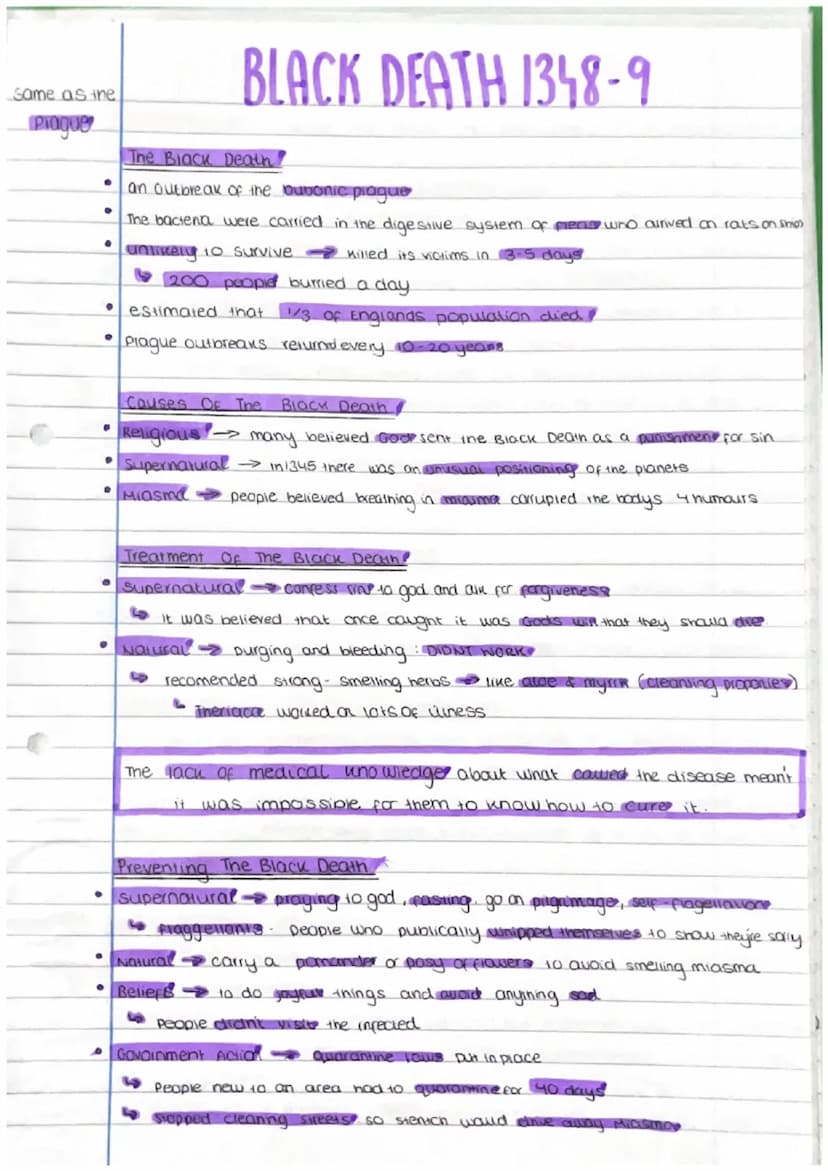 BLACK DEATH 1348-9
same as the
plague
The Black Death
an outbreak of the bubonic plague
The bacteria were carried in the digestive system of fleas who arrived on rats on ships
unlikely to survive → killed its victims in 3-5 days
↳ 200 people burried a day
estimated that 1/3 of Englands population died
Plague outbreaks returned every 10-20 years
Causes Of The Black Death
Religious → many believed God sent the Black Death as a punishment for sin
Supernatural → in 1345 there was an unusual positioning of the planets
Miasma → people believed breathing in miasma corrupted the bodys 4 humours
Treatment Of The Black Death
Supernatural → confess sins to god and ask for forgiveness
↳ it was believed that once caught it was Gods will that they should die
Natural → purging and bleeding : DIDNT WORK
↳ recomended strong-smelling herbs → like aloe & myrrh (cleansing properties)
↳ Theriacca worked on lots of illness
The lack of medical knowledge about what caused the disease mean't
it was impossible for them to know how to cure it.
Preventing The Black Death
Supernatural → praying to god, fasting, go on pilgrimage, self-flagellation
↳ flaggellants - people who publically whipped themselves to show they're sorry
Natural → carry a pomander or posy of flowers to avoid smelling miasma
Beliefs → to do joyful things and avoid anything sad
↳ People didn't visit the infected
Government Action → quarantine laws put in place
↳ People new to an area had to quarantine for 40 days
↳ stopped cleaning streets so stench would drive away miasma